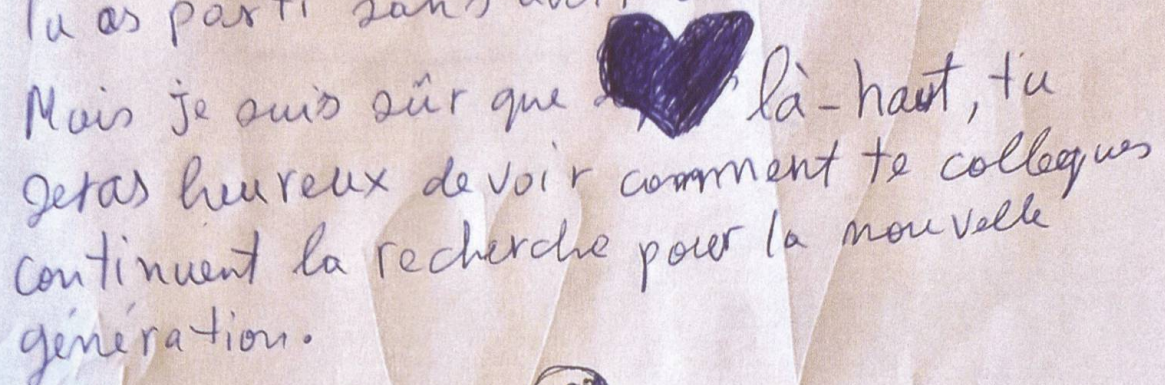 Tu as parti sans
Mais je suis sûr que là-haut, tu
seras heureux de voir comment te colleques
continuent la recherche pour la nouvelle
génération.